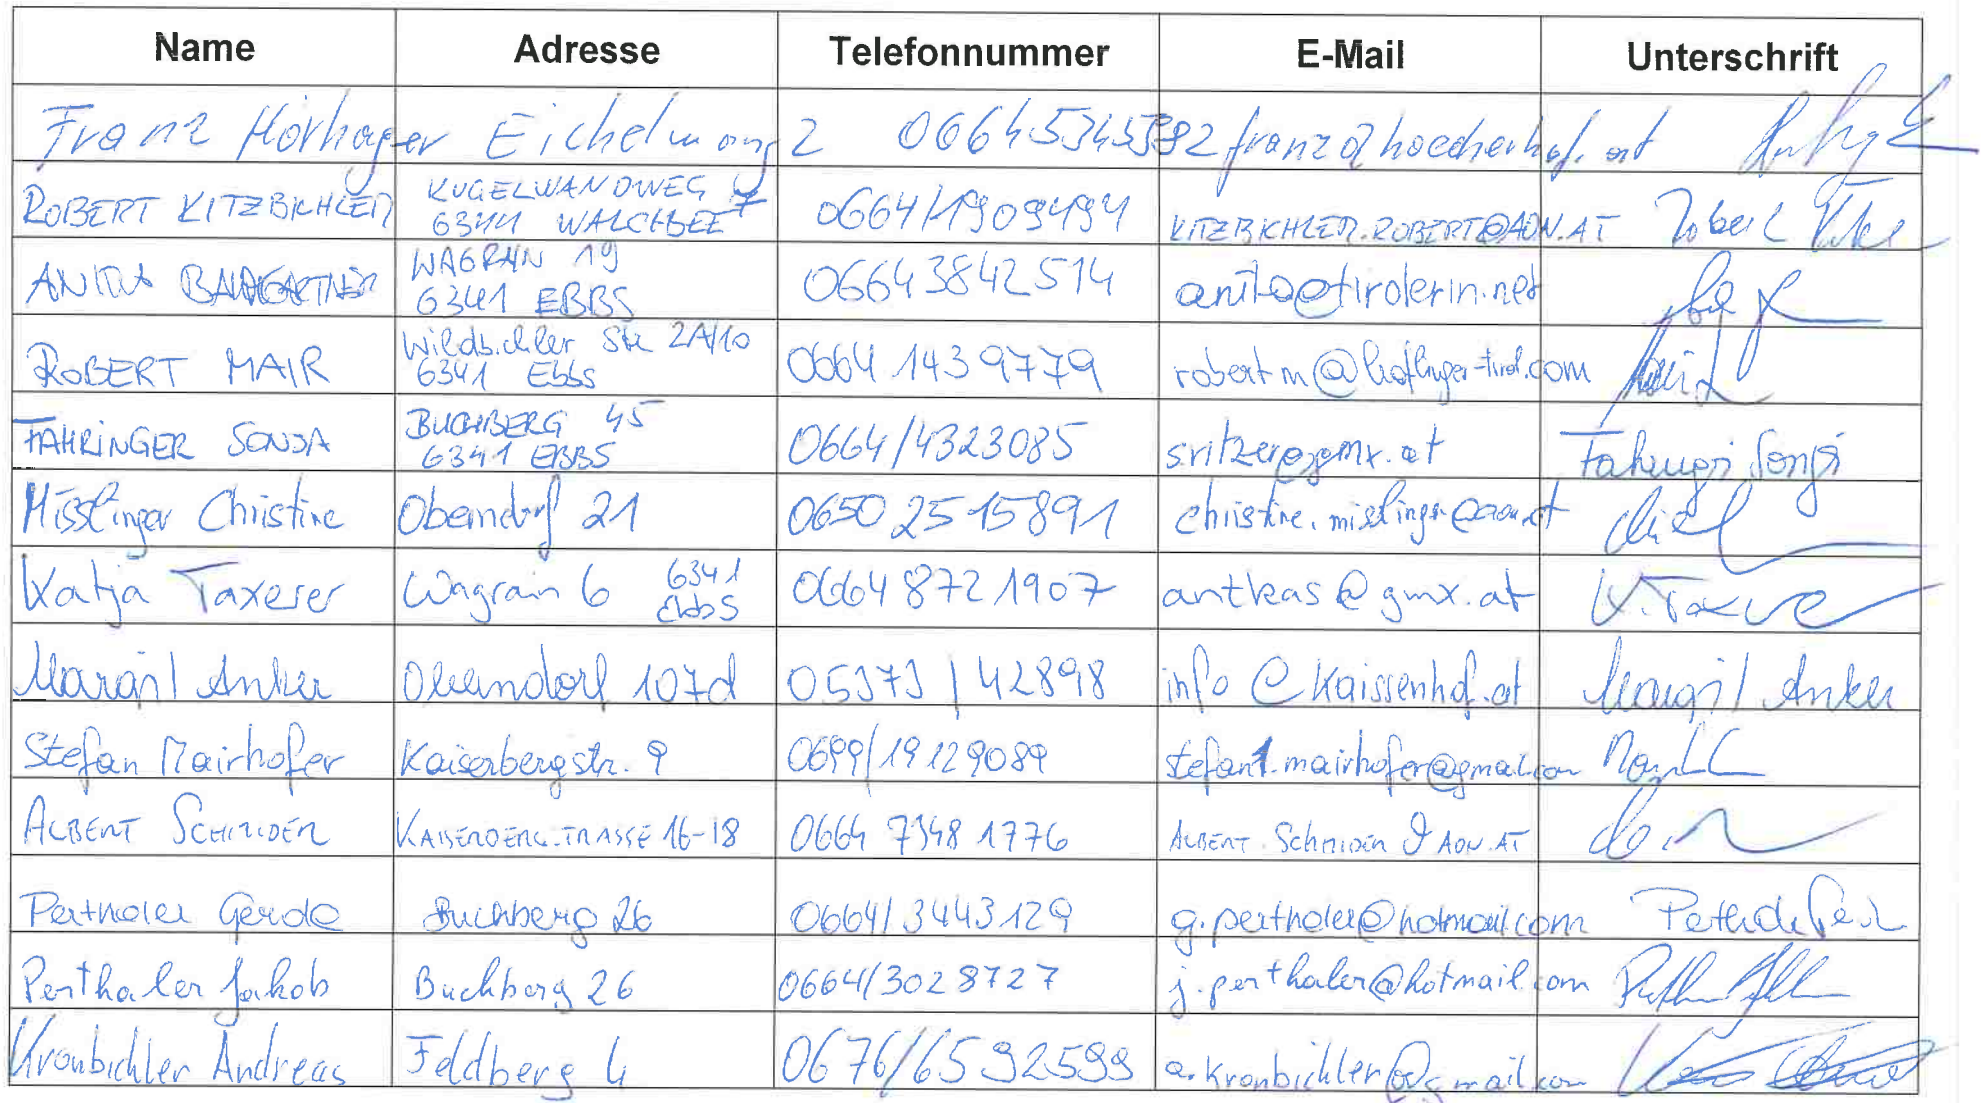 Name Adresse Telefonnummer E-Mail Unterschrift
Franz Hörhager Eichelwang 2 franz@hoecherhof.at
ROBERT KITZBICHLER KUGELWANDWEG 7 0664/1909494 KITZBICHLER.ROBERT@AON.AT Robert
6344 WALCHSEE
ANITA BAUMGARTNER WAGRAIN 19 06643842514 anita@tirolerin.net
6341 EBBS
ROBERT MAIR Wildbichler Str 2A/10 0664 1439779 robertm@hoflinger-tirol.com
6341 Ebbs
FAHRINGER SONJA BUCHBERG 45 0664/4323085 sritzer@gmx.at Fahringer Sonja
6341 EBBS
Misslinger Christine Oberndorf 21 0650 2515891 christine.misslinger@aon.at
Katja Taxerer Wagrain 6 6341 0664 8721907 antkas@gmx.at K. Taxerer
Ebbs
Margit Anker Oberndorf 107d 05373/42898 info@Kaissenhof.at Margit Anker
Stefan Mairhofer Kaiserbergstr. 9 0699/19129089 stefan1.mairhofer@gmail.com
ALBERT SCHMIDER KAISERBERGSTRASSE 16-18 0664 7348 1776 ALBERT.Schmider@AON.AT
Perthaler Gerda Buchberg 26 0664/3443129 g.perthaler@hotmail.com Perthaler Gerda
Perthaler Jakob Buchberg 26 0664/3028727 j.perthaler@hotmail.com
Kronbichler Andreas Feldberg 4 0676/6592599 a.kronbichler@gmail.com